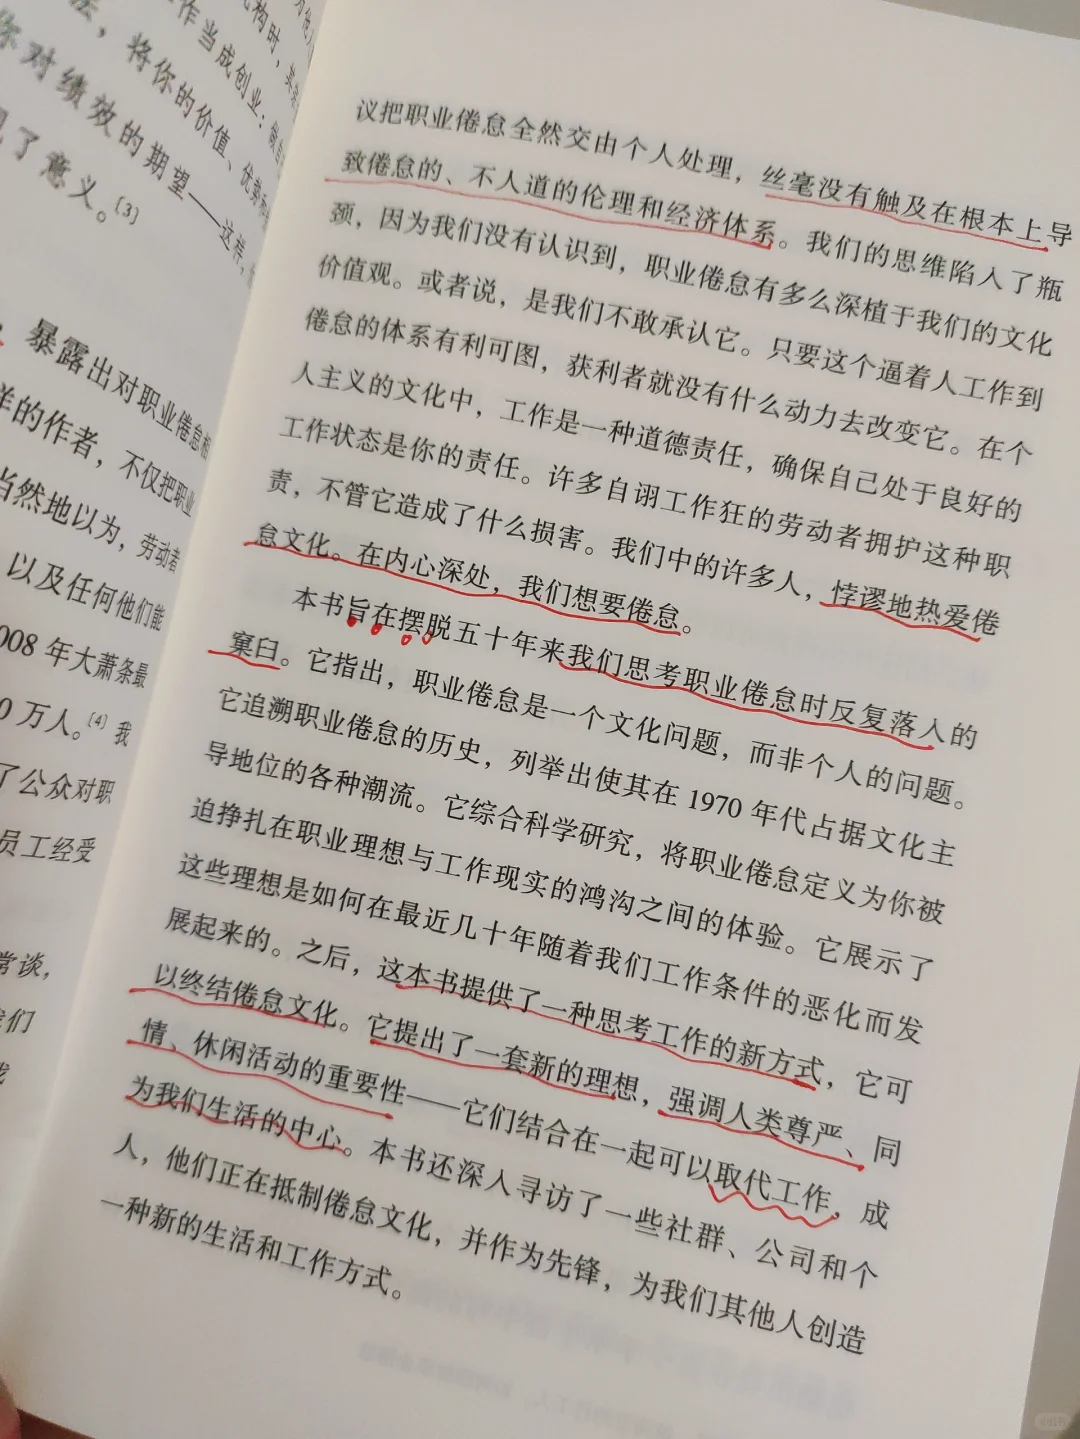 构时，其
作当成创业；
，将你的价值、优势
你对绩效的期望——这样，
了意义。[3]
暴露出对职业倦怠
样的作者，不仅把职业
当然地以为，劳动者
以及任何他们能
008 年大萧条最
0 万人。[4] 我
了公众对职
员工经受
常谈，
我们
议把职业倦怠全然交由个人处理，丝毫没有触及在根本上导
致倦怠的、不人道的伦理和经济体系。我们的思维陷入了瓶
颈，因为我们没有认识到，职业倦怠有多么深植于我们的文化
价值观。或者说，是我们不敢承认它。只要这个逼着人工作到
倦怠的体系有利可图，获利者就没有什么动力去改变它。在个
人主义的文化中，工作是一种道德责任，确保自己处于良好的
工作状态是你的责任。许多自诩工作狂的劳动者拥护这种职
责，不管它造成了什么损害。我们中的许多人，悖谬地热爱倦
怠文化。在内心深处，我们想要倦怠。
本书旨在摆脱五十年来我们思考职业倦怠时反复落入的
窠臼。它指出，职业倦怠是一个文化问题，而非个人的问题。
它追溯职业倦怠的历史，列举出使其在 1970 年代占据文化主
导地位的各种潮流。它综合科学研究，将职业倦怠定义为你被
迫挣扎在职业理想与工作现实的鸿沟之间的体验。它展示了
这些理想是如何在最近几十年随着我们工作条件的恶化而发
展起来的。之后，这本书提供了一种思考工作的新方式，它可
以终结倦怠文化。它提出了一套新的理想，强调人类尊严、同
情、休闲活动的重要性——它们结合在一起可以取代工作，成
为我们生活的中心。本书还深入寻访了一些社群、公司和个
人，他们正在抵制倦怠文化，并作为先锋，为我们其他人创造
一种新的生活和工作方式。